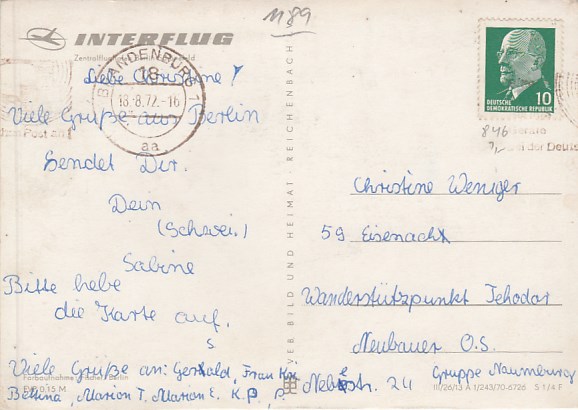 1189
INTERFLUG
Zentralflughafen
BRANDENBURG 1
18
18.-8.72.-16
aa
Liebe Christine!
Viele Grüße aus Berlin
Sendet Dir.
Dein
(Schwei.)
Sabine
Bitte hebe
die Karte auf.
Viele Grüße an: Gerald, Frau
Bettina, Marion T, Marion E. K. B,
Farbaufnahme
EVP 0,15 M
VEB BILD UND HEIMAT · REICHENBACH
DEUTSCHE
DEMOKRATISCHE REPUBLIK
10
846
bei der Deuts
Christine Weniger
59 Eisenach
Wanderstützpunkt Tehodar
Neubauer O.S.
Nebestr. 24 Gruppe Naumburg
III/26/13 A 1/243/70-6726 S 1/4 F